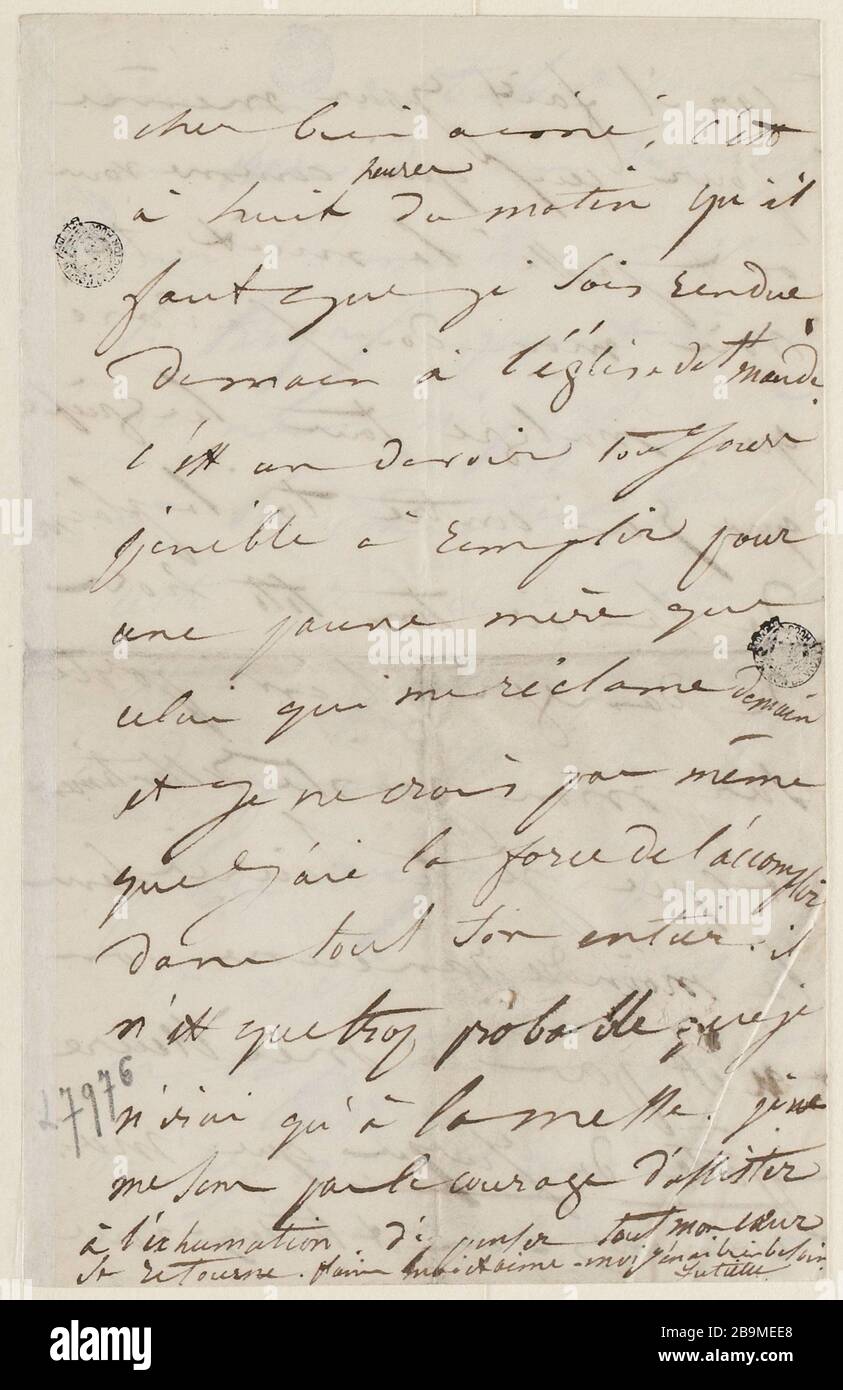 cher bien aimé, c'est
à huit heures du matin qu'il
faut que je sois rendue
demain à l'église de St Mandé.
c'est un devoir toujours
pénible à remplir pour
une pauvre mère que
celui qui me réclame demain
et je ne crois pas même
que j'aie la force de l'accomplir
dans tout son entier. il
n'est que trop probable que je
n'irai qu'à la messe. je ne
me sens pas le courage d'assister
à l'exhumation. d'y penser tout mon cœur
se retourne. plains-moi et aime-moi j'en ai bien besoin.
Juliette
L7976
alamy
Image ID: 2B9MEE8
www.alamy.com